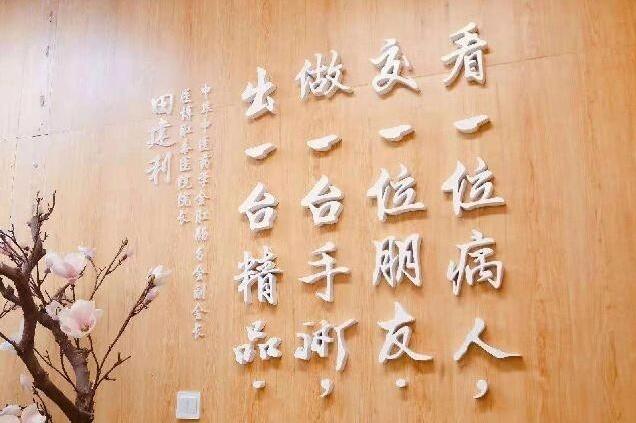 看一位病人,
交一位朋友.
做一台手術,
出一台精品.
中华中医药学会肛肠分会副会长
医博肛泰医院院长
田建利